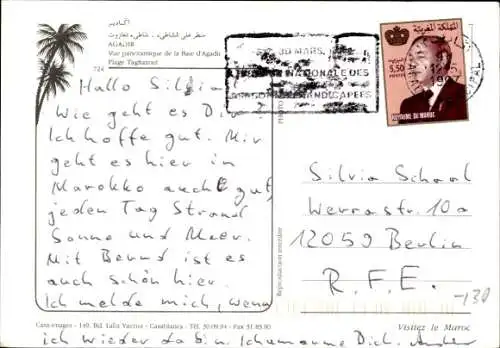 أكادير
AGADIR
Vue panoramique de la Baie d'Agadir
Plage Taghazout
724
Hallo Silvia
Wie geht es Dir?
Ich hoffe gut. Mir
geht es hier in
Marokko auch gut,
jeden Tag Strand
Sonne und Meer.
Mit Bernd ist es
auch schön hier.
Ich melde mich, wenn
ich wieder da bin. Ich umarme Dich.
30 MARS,
NATIONALE DES
HANDICAPEES
المملكة المغربية
5,50
POSTES
ROYAUME DU MAROC
Silvia Schaal
Werrastr. 10a
12059 Berlin
R.F.E.
-130
Reproduction interdite
Casa-images - 149, Bd. Lalla Yacout - Casablanca - Tél. 30.09.94 - Fax 31.89.90
Visitez le Maroc